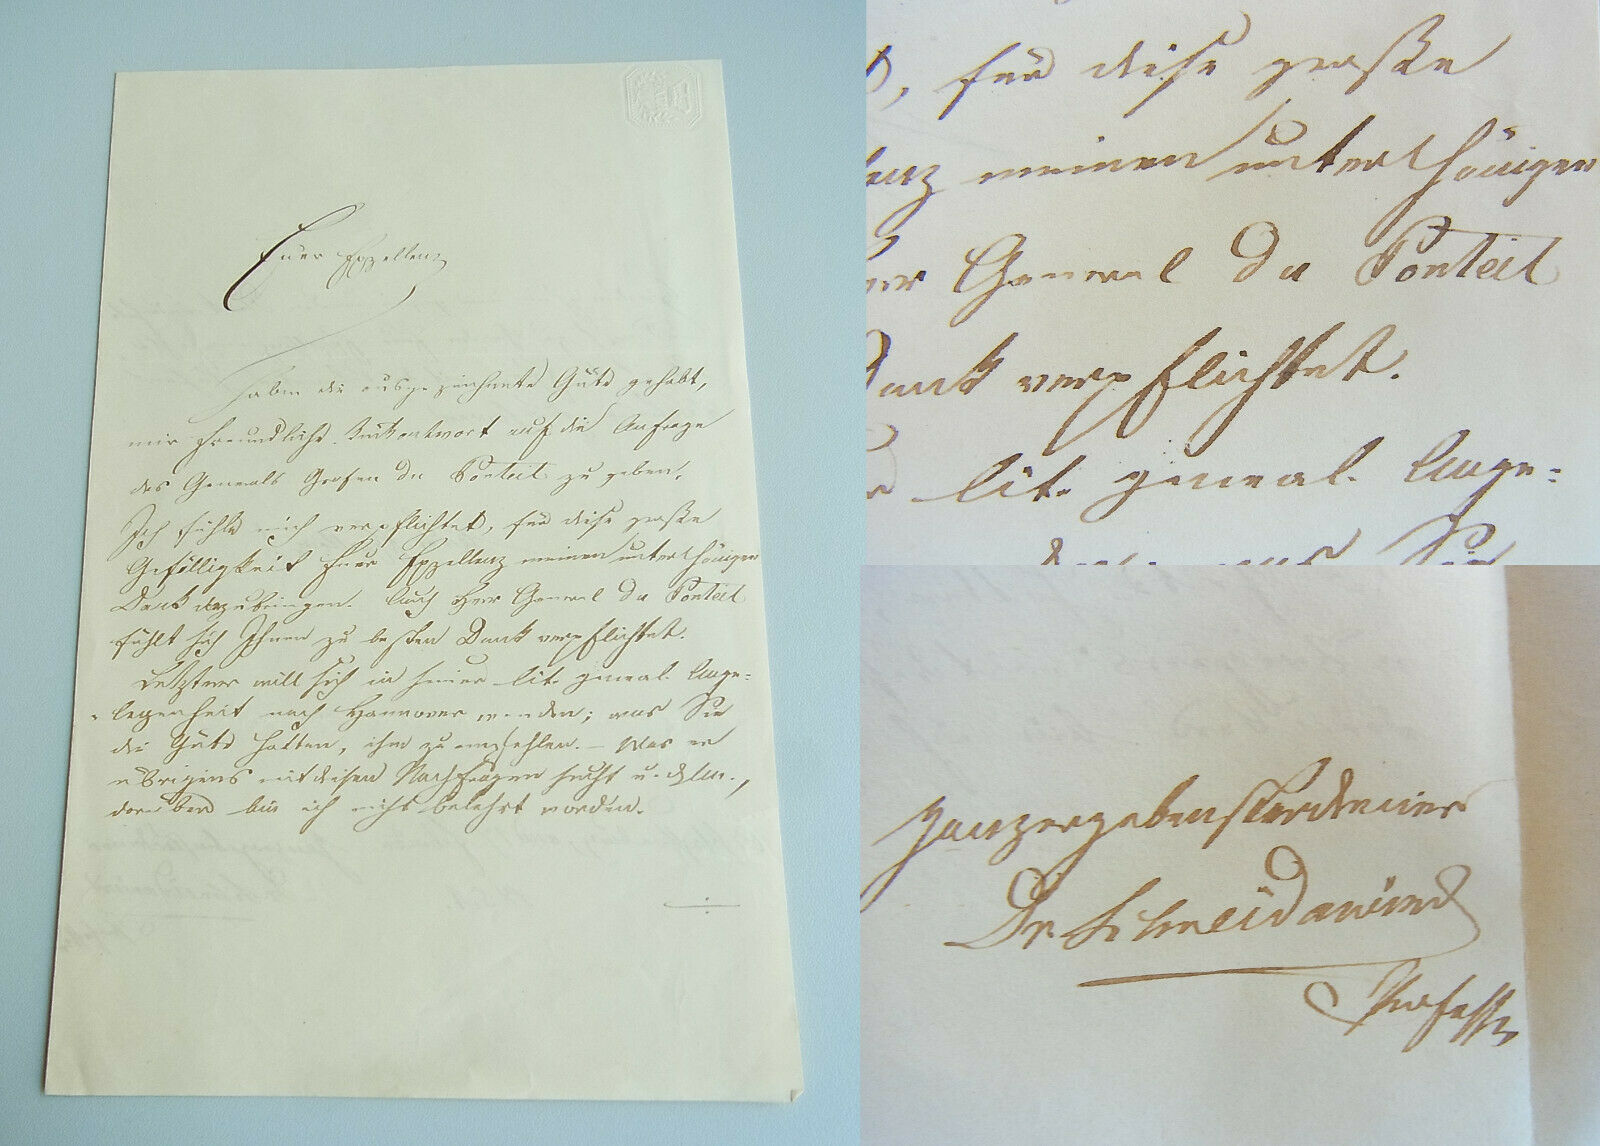 Euer Exzellenz
haben die ausgezeichnete Güte gehabt,
mir freundlichst Rückantwort auf die Anfrage
des Generals Grafen du Ponteil zu geben.
Ich fühle mich verpflichtet, für diese große
Gefälligkeit Euer Exzellenz meinen unterthänigen
Dank darzubringen. Auch Herr General du Ponteil
fühlt sich Ihnen zu besten Dank verpflichtet.
Letzterer will sich in seiner lit. geneal. Ange=
legenheit nach Hannover wenden; was Sie
die Güte hatten, ihm zu empfehlen. – Was er
übrigens mit diesen Nachfragen sucht u.
darüber bin ich nicht belehrt worden.
, für diese große
meinen unterthänigen
General du Ponteil
Dank verpflichtet.
lit. geneal. Ange=
was Sie
ganzergebenster Diener
Dr. Schneidawind
Professor